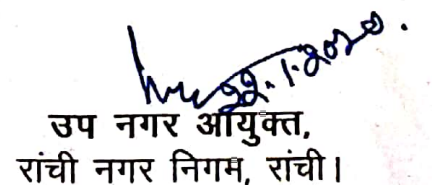 22.1.2020.
उप नगर आयुक्त,
रांची नगर निगम, रांची।